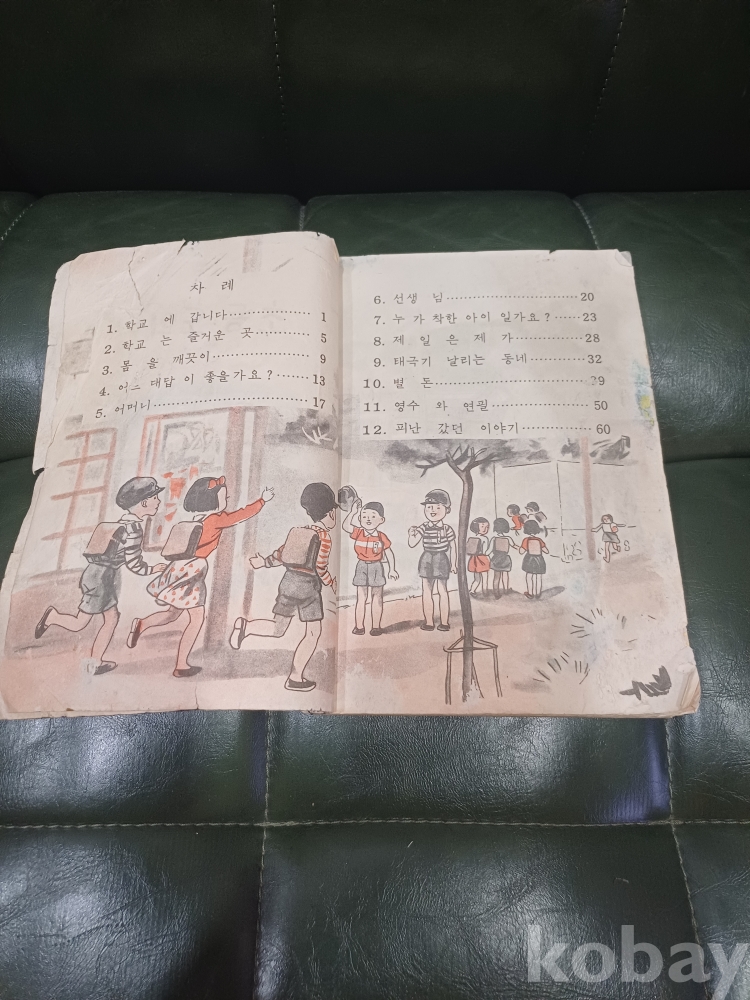 차 례
1. 학교 에 갑니다 1
2. 학교 는 즐거운 곳 5
3. 몸 을 깨끗이 9
4. 어느 대답 이 좋을가요? 13
5. 어머니 17
6. 선생 님 20
7. 누 가 착한 아이 일가요? 23
8. 제 일 은 제 가 28
9. 태극기 날리는 동네 32
10. 별 돈 39
11. 영수 와 연필 50
12. 피난 갔던 이야기 60
kobay